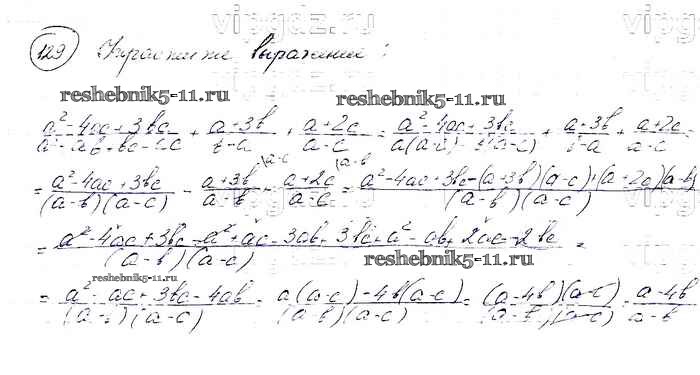 vipgdz.ru
129 Упростите выражение:
reshebnik5-11.ru reshebnik5-11.ru
(a²-4ac+3bc)/(a²-ab+bc-ac) + (a+3b)/(b-a) + (a+2c)/(a-c) = (a²-4ac+3bc)/(a(a-c)-b(a-c)) + (a+3b)/(b-a) + (a+2c)/(a-c)
= (a²-4ac+3bc)/((a-b)(a-c)) - (a+3b)/(a-b) \a-c + (a+2c)/(a-c) \a-b = (a²-4ac+3bc-(a+3b)(a-c)+(a+2c)(a-b))/((a-b)(a-c))
= (a²-4ac+3bc-a²+ac-3ab+3bc+a²-ab+2ac-2bc)/((a-b)(a-c)) =
reshebnik5-11.ru reshebnik5-11.ru
= (a²-ac+3bc-4ab)/((a-b)(a-c)) = (a(a-c)-4b(a-c))/((a-b)(a-c)) = ((a-4b)(a-c))/((a-b)(a-c)) = (a-4b)/(a-b)